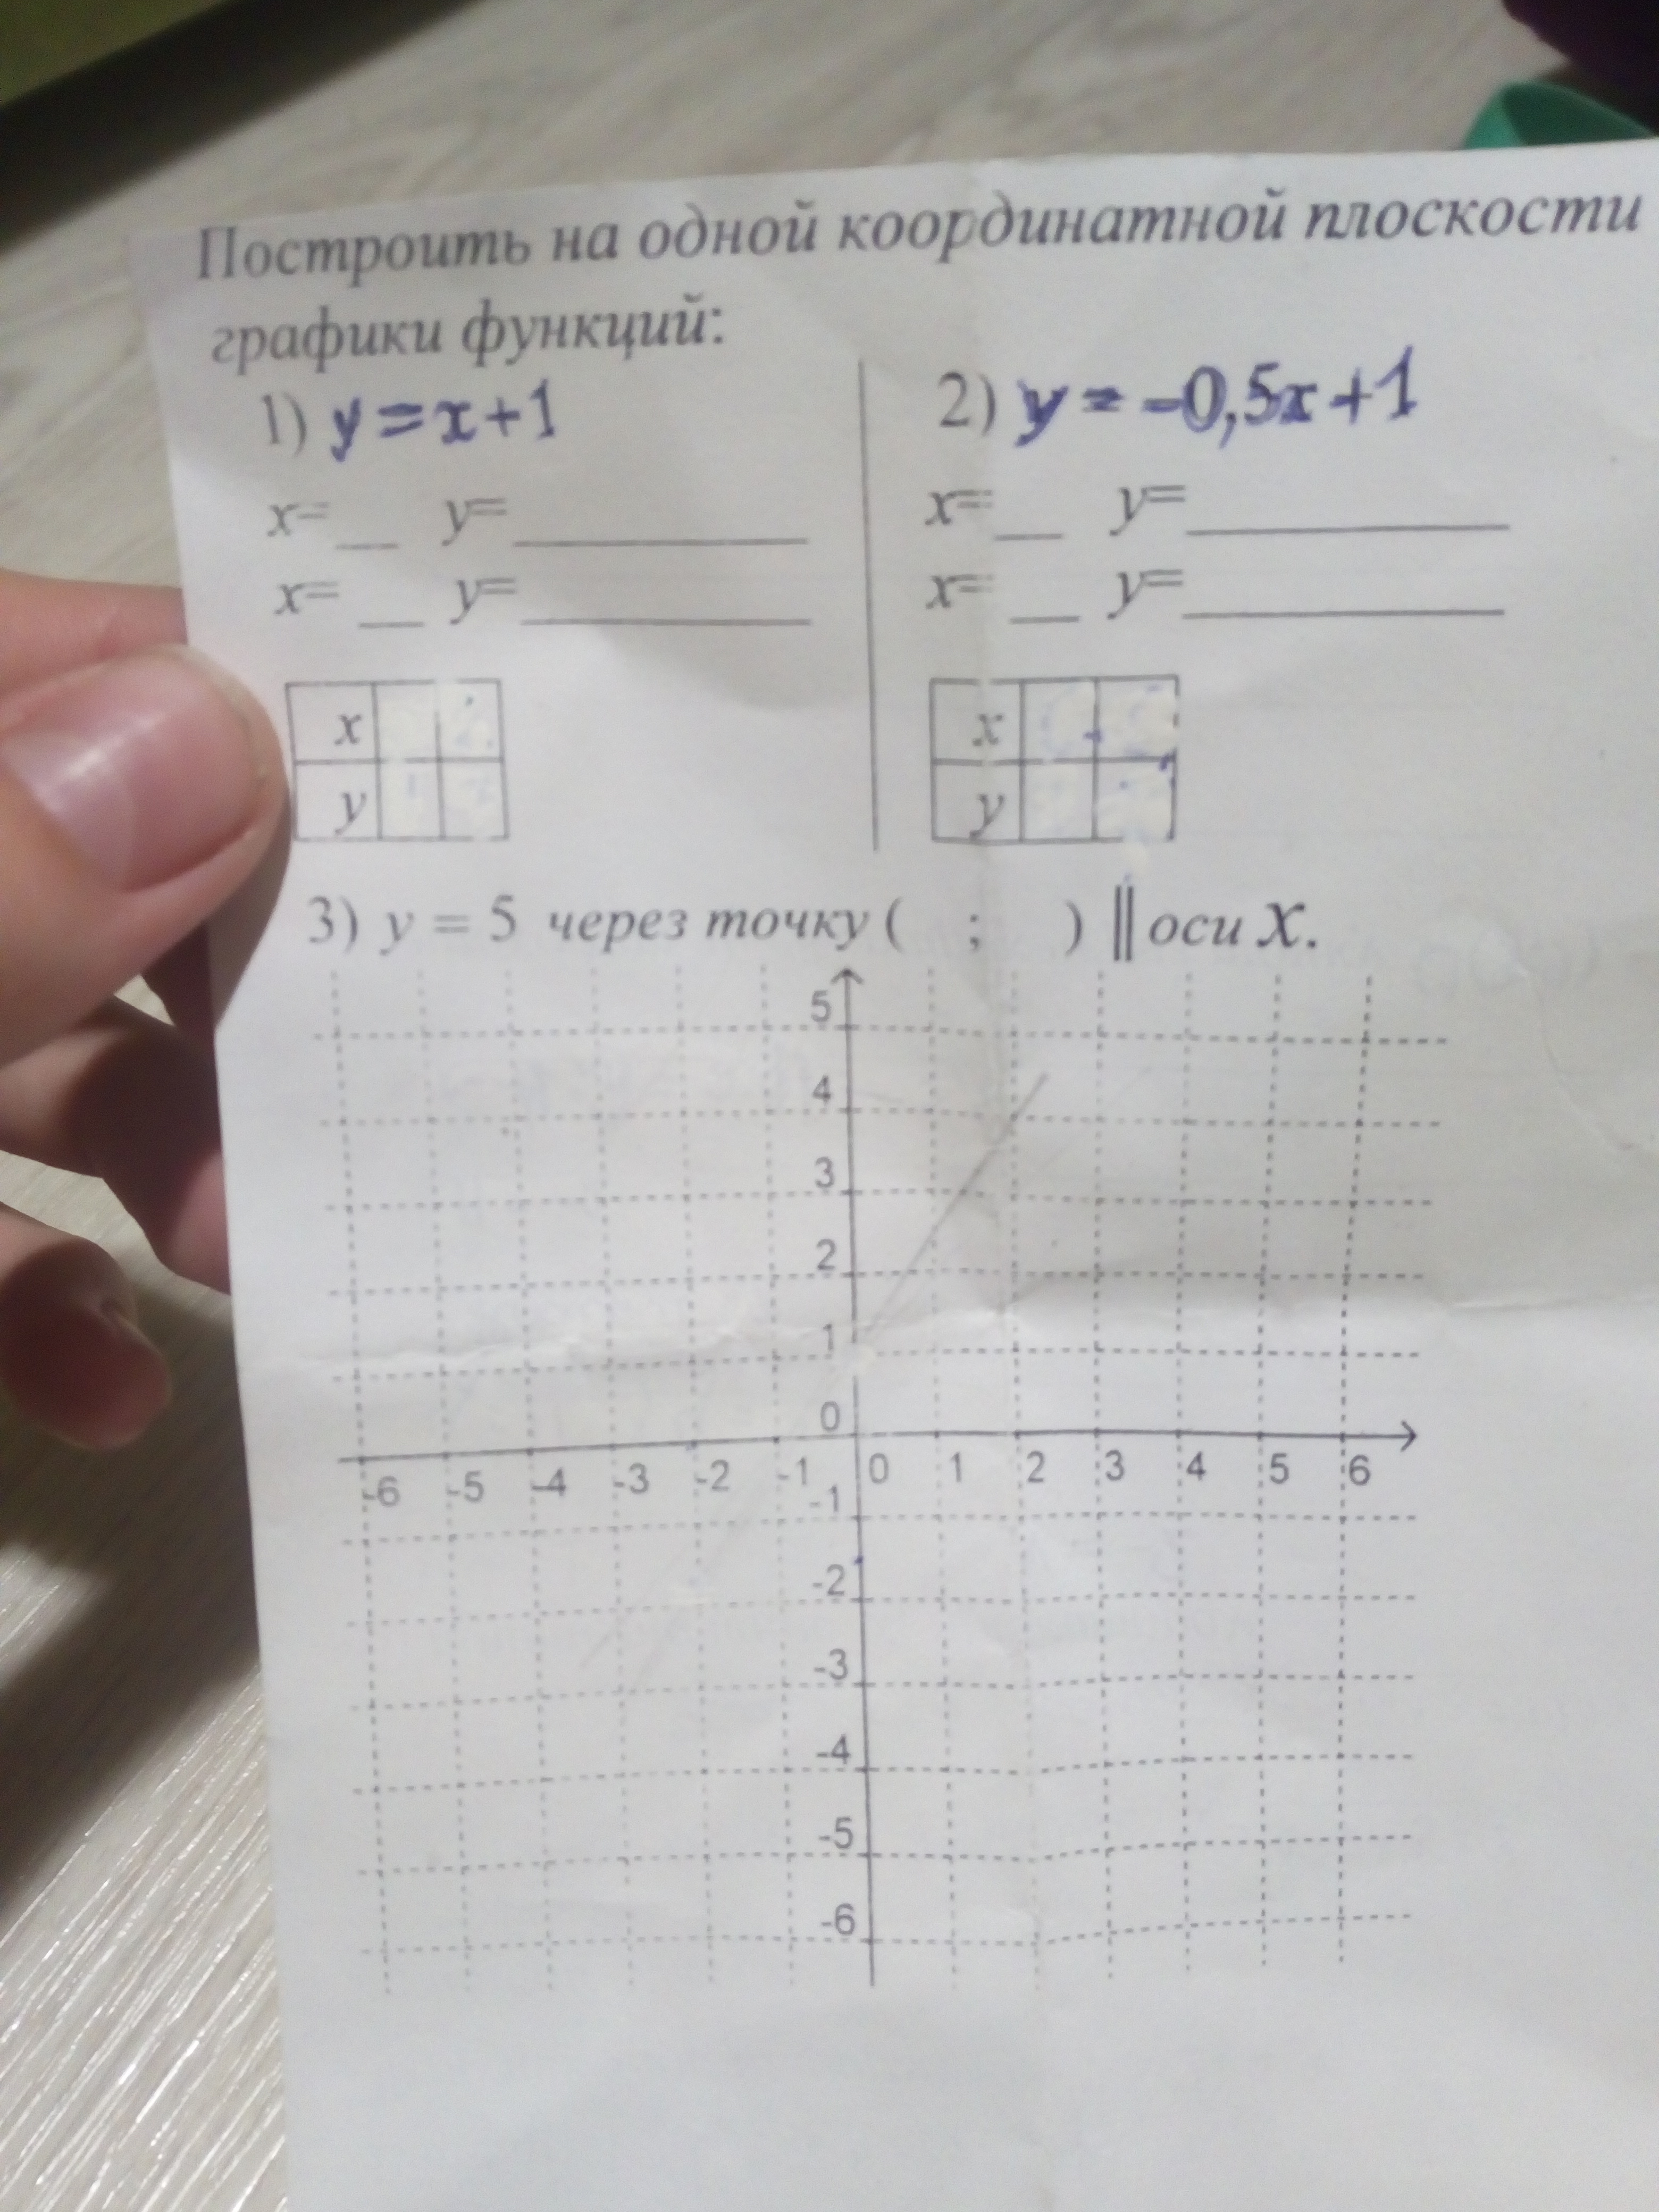 Построить на одной координатной плоскости
графики функций:
1) y = x+1
2) y = -0,5x+1
x= __ y= ________
x= __ y= ________
x= __ y= ________
x= __ y= ________
x
y
x
y
3) y = 5 через точку ( ; ) || оси X.
5
4
3
2
1
0
-6 -5 -4 -3 -2 -1 0 1 2 3 4 5 6
-1
-2
-3
-4
-5
-6